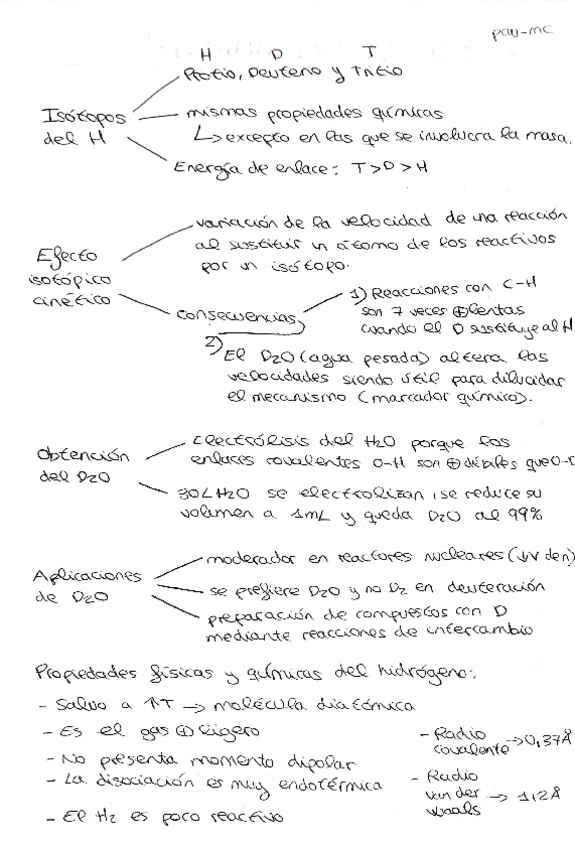 pau-mc
H D T
Protio, Deuterio y Tritio
Isótopos
del H
mismas propiedades químicas
↳ excepto en las que se involucra la masa.
Energía de enlace: T > D > H
Efecto
isotópico
cinético
variación de la velocidad de una reacción
al sustituir un átomo de los reactivos
por un isótopo.
consecuencias
1) Reacciones con C-H
son 7 veces ⊕ lentas
cuando el D sustituye al H
2) El D2O (agua pesada) altera las
velocidades siendo útil para dilucidar
el mecanismo (marcador químico).
Obtención
del D2O
Electrólisis del H2O porque los
enlaces covalentes O-H son ⊕ débiles que O-D
30L H2O se electrolizan, se reduce su
volumen a 1mL y queda D2O al 99%
Aplicaciones
de D2O
moderador en reactores nucleares (↓V den)
se prefiere D2O y no D2 en deuteración
preparación de compuestos con D
mediante reacciones de intercambio
Propiedades físicas y químicas del hidrógeno:
- Salvo a ↑T → molécula diatómica
- Es el gas ⊕ ligero
- No presenta momento dipolar
- La disociación es muy endotérmica
- El H2 es poco reactivo
- Radio
covalente → 0,37Å
- Radio
van der → 1,2Å
waals